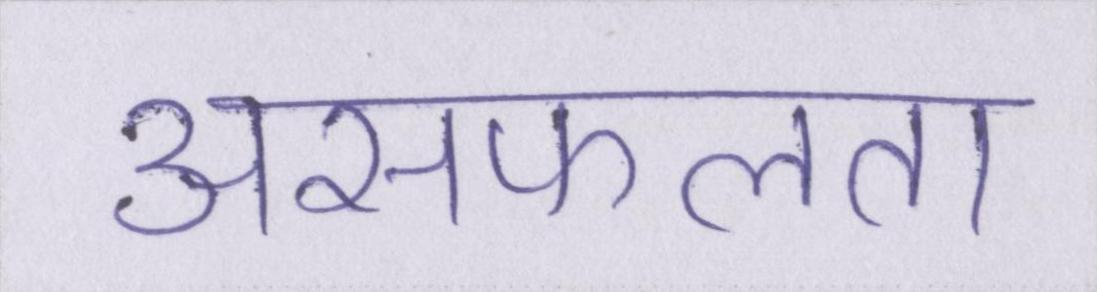 असफलता